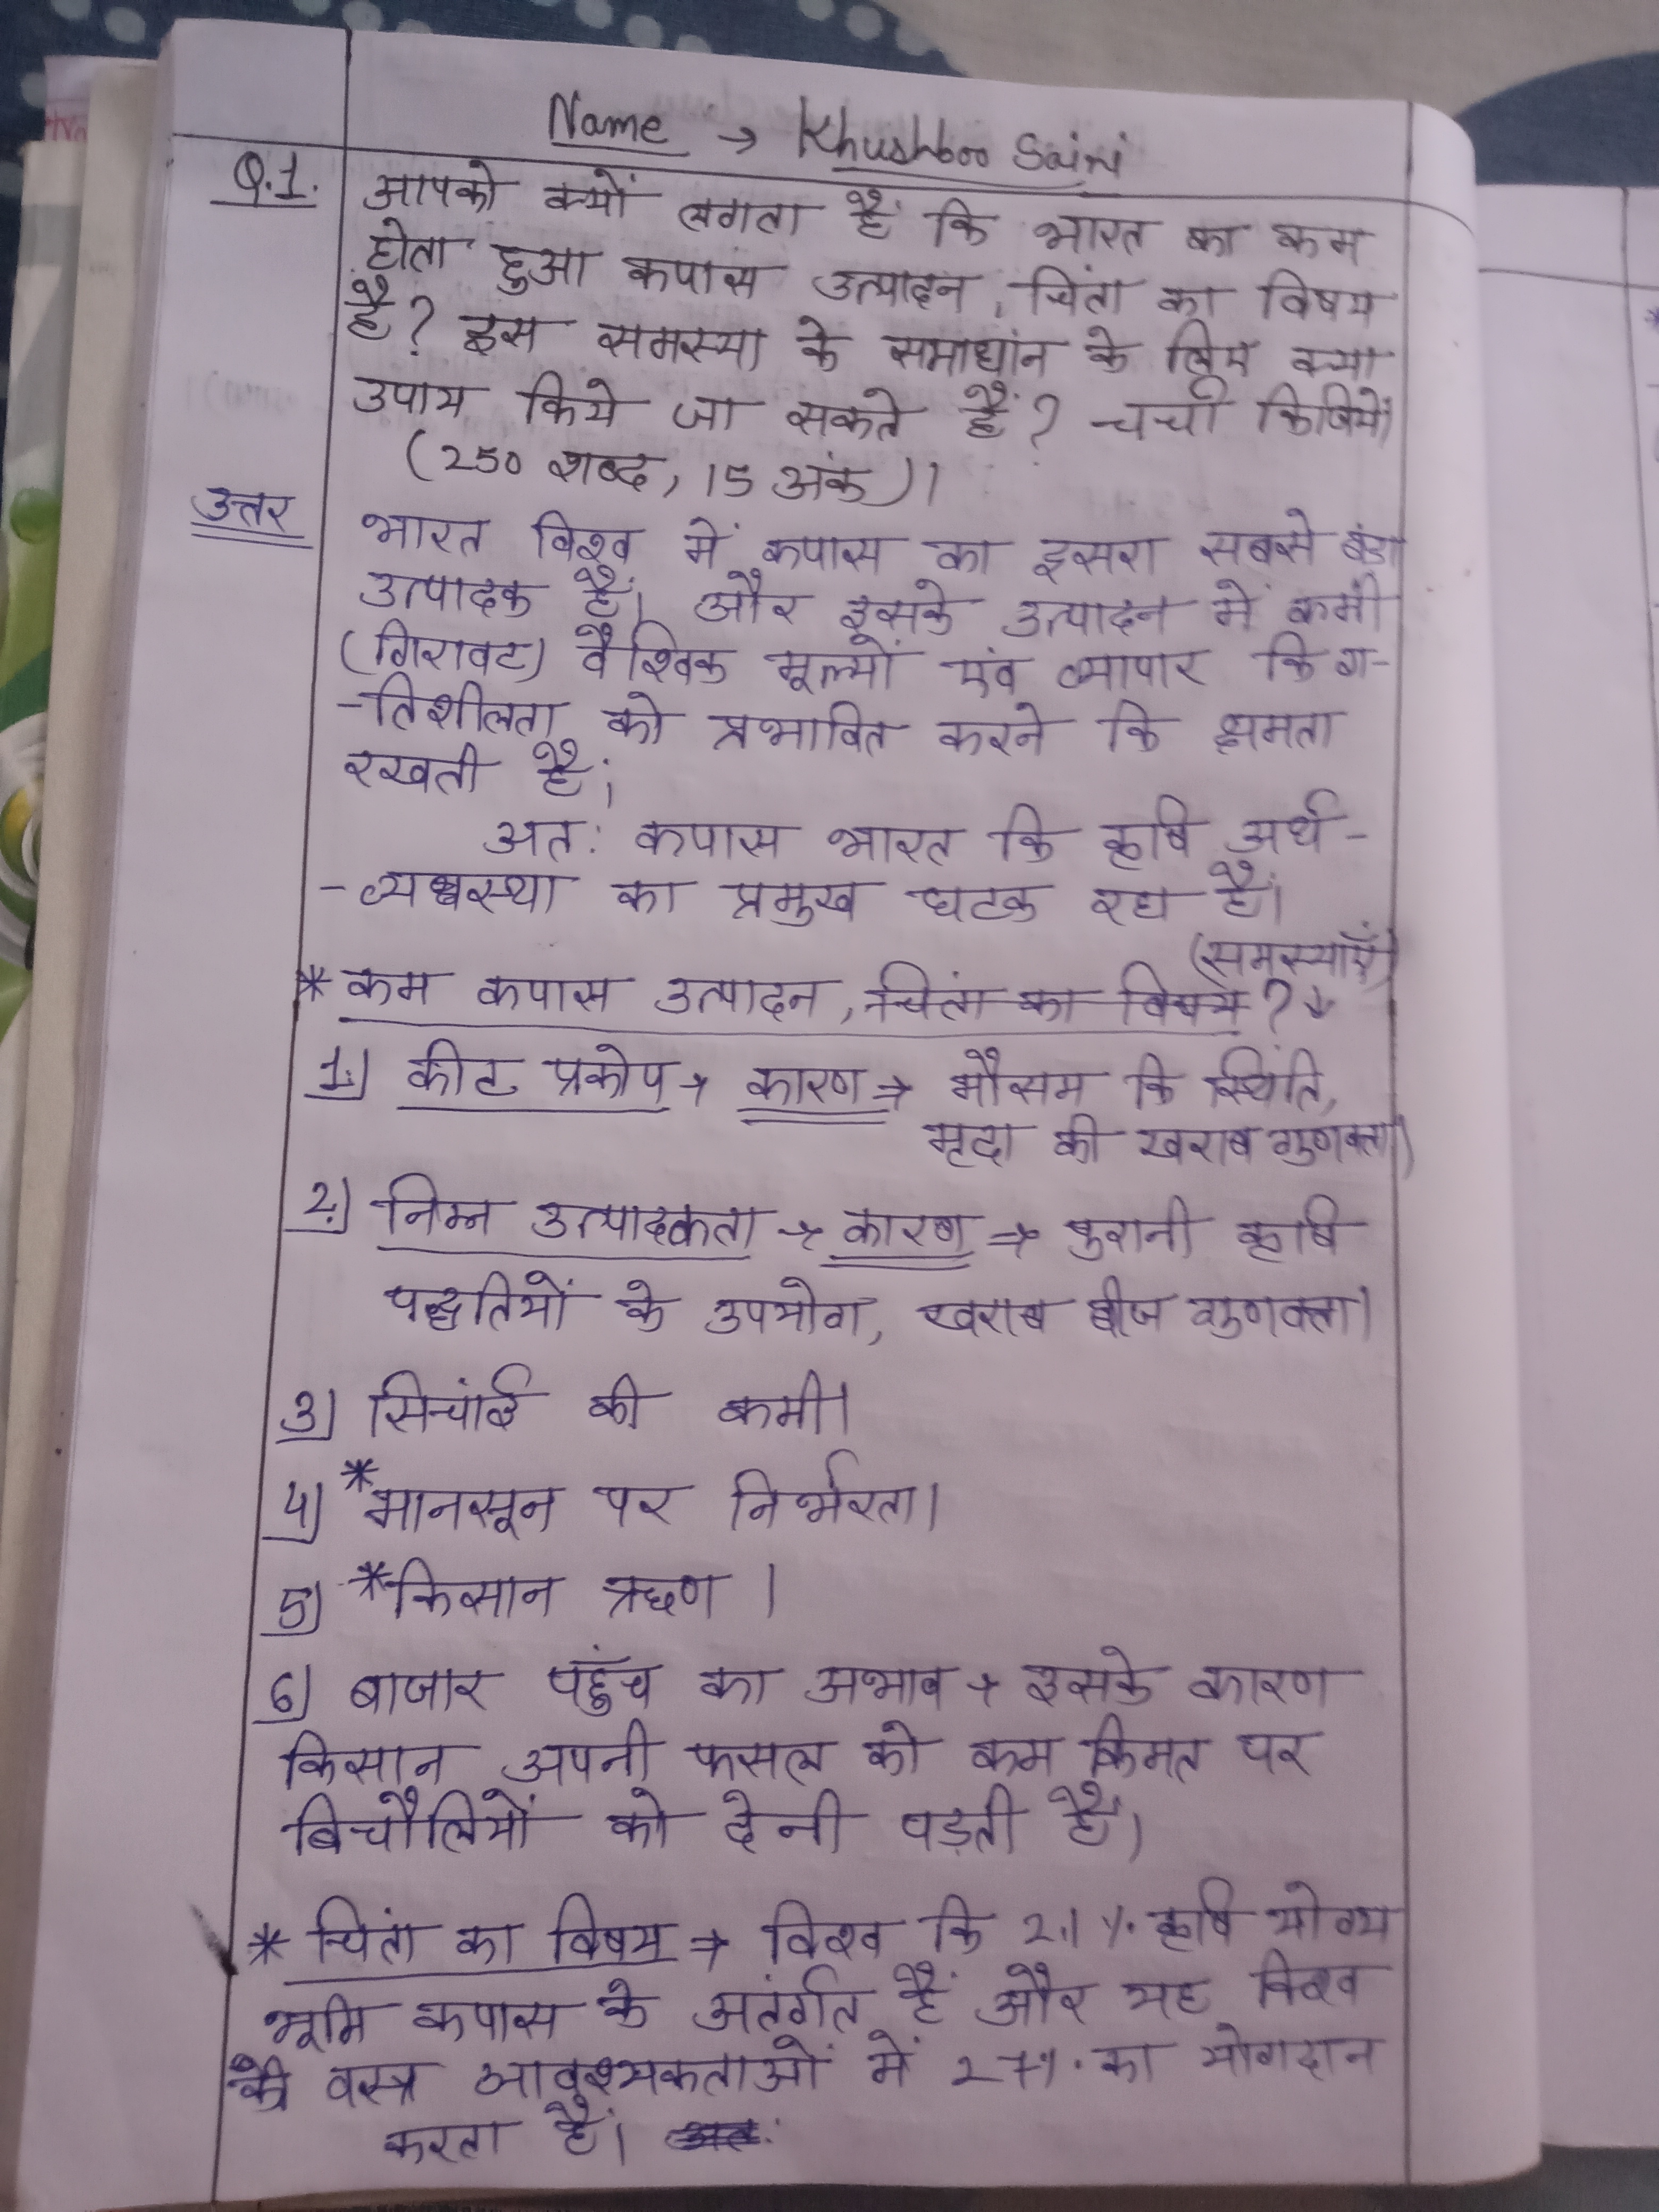 Name → Khushboo Saini
Q.1. आपको क्यों लगता हैं कि भारत का कम
होता हुआ कपास उत्पादन, चिंता का विषय
है? इस समस्या के समाधान के लिए क्या
उपाय किये जा सकते हैं? चर्चा किजिये।
(250 शब्द, 15 अंक)।
उत्तर भारत विश्व में कपास का दुसरा सबसे बड़ा
उत्पादक हैं। और इसके उत्पादन में कमी
(गिरावट) वैश्विक मूल्यों एंव व्यापार कि ग-
-तिशीलता को प्रभावित करने कि क्षमता
रखती हैं।
अत: कपास भारत कि कृषि अर्थ-
-व्यवस्था का प्रमुख घटक रहा हैं।
(समस्याएँ)
* कम कपास उत्पादन, चिंता का विषय? ↓
1.) कीट प्रकोप → कारण → मौसम कि स्थिति,
मृदा की खराब गुणवत्ता।
2.) निम्न उत्पादकता → कारण → पुरानी कृषि
पद्धतियों के उपयोग, खराब बीज गुणवत्ता।
3) सिचांई की कमी।
4) *मानसून पर निर्भरता।
5) *किसान ऋण ।
6) बाजार पहुँच का अभाव → इसके कारण
किसान अपनी फसल को कम किमत पर
बिचौलियों को देनी पड़ती हैं।
* चिंता का विषय → विश्व कि 2.1 % कृषि योग्य
भूमि कपास के अतंर्गत हैं और यह विश्व
की वस्त्र आवश्यकताओं में 27% का योगदान
करता हैं।